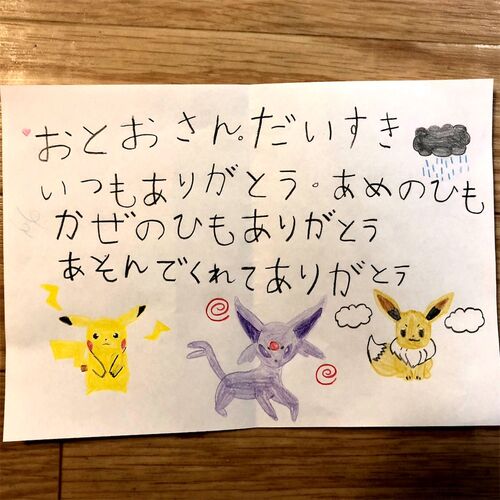 おとおさん。だいすき
いつもありがとう。あめのひも
かぜのひもありがとう
あそんでくれてありがとう